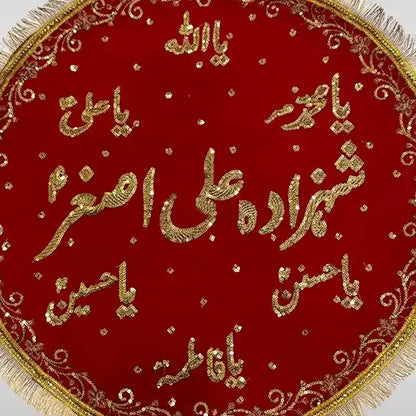 یا اللہ
یا محمدؐ
یا علیؑ
شہزادہ علی اصغرؑ
یا حسنؑ
یا حسینؑ
یا فاطمہؑ